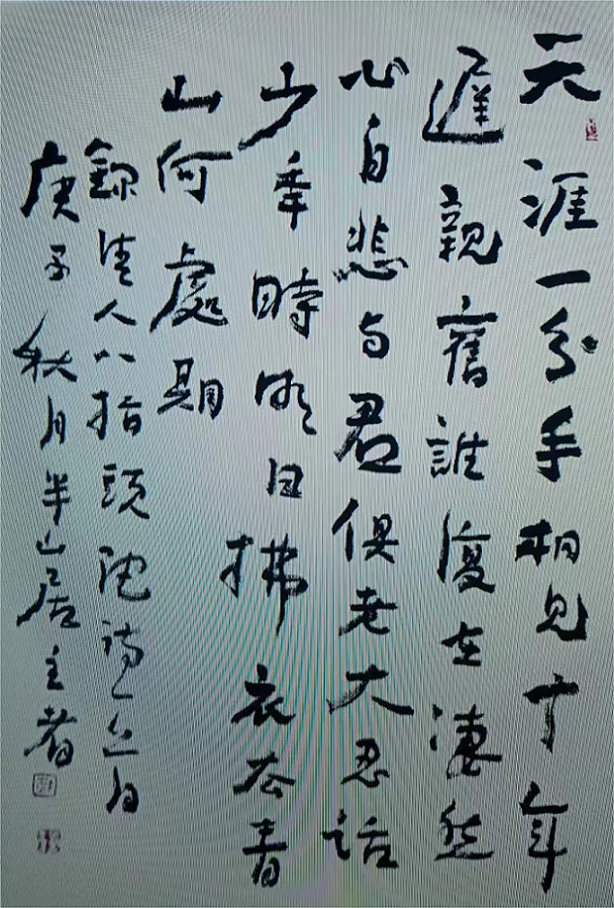 天涯一分手相見十年
遲親舊誰復在淒然
心自悲与君俱老大忍話
少年時明日拂衣去青
山何處期
錄清人八指頭陀詩一
庚子秋月半山居主者